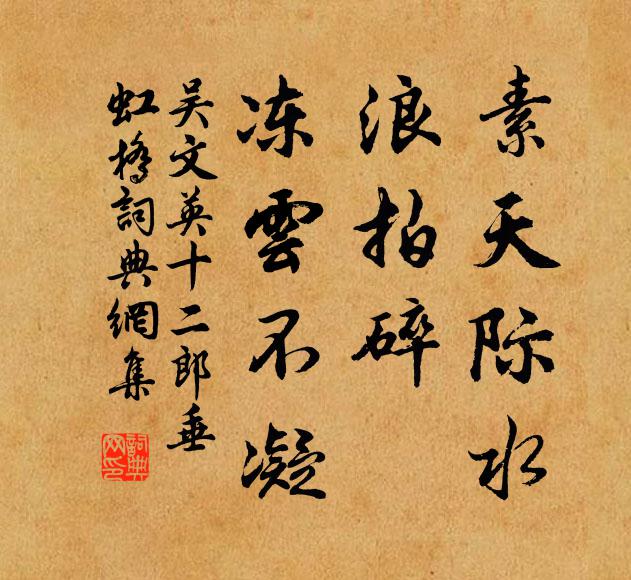 素天际水
浪拍碎
冻雲不凝
吴文英十二郎垂
虹橋詞典網集
詞典
网印